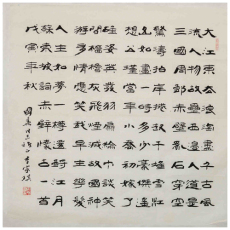 大江東去浪淘盡千古風
流人物故壘西邊人道是
三國周郎赤壁亂石穿空
驚濤拍岸捲起千堆雪江
山如畫一時多少豪傑遙
想公瑾當年小喬初嫁了
雄姿英發羽扇綸巾談笑
間檣櫓灰飛煙滅故國神
遊多情應笑我早生華髮
人生如夢一尊還酹江月
蘇東坡赤壁懷古一首
戊寅年秋